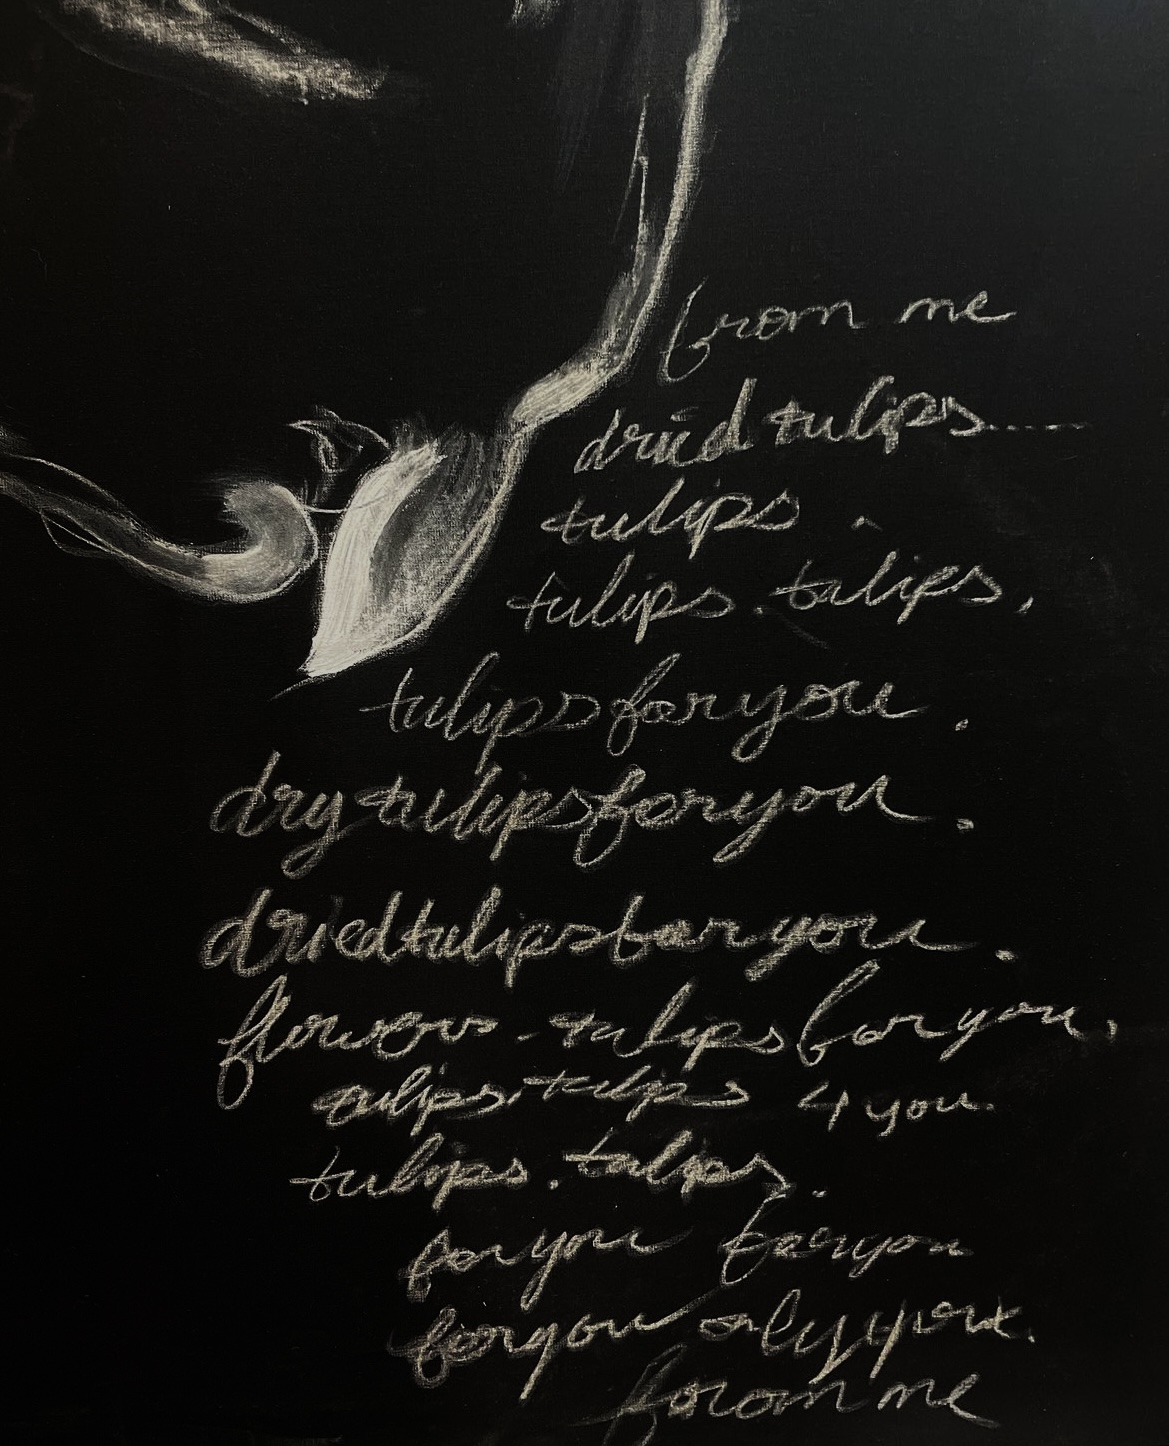 from me
dried tulips......
tulips
tulips. tulips,
tulipsforyou.
drytulipsforyou.
driedtulipsforyou.
flowers - tulipsforyou,
tulips.tulips 4 you.
tulips. tulips.
foryou foryou
foryou only you.
from me